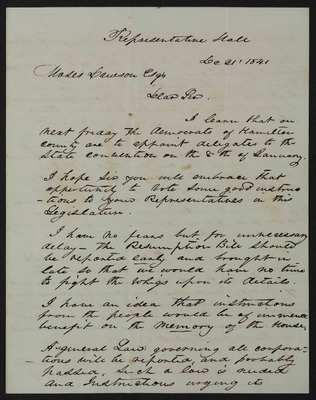 Representative Hall
Dec 21st 1841
Moses Dawson Esqr
Dear Sir.
I learn that on
next friday the democrats of Hamilton
county are to appoint delegates to the
State convention on the 8th of January.
I hope Sir you will embrace that
opportunity to vote some good instruc
-tions to your Representatives in this
Legislature.
I have no fears but for unnecessary
delay — the Resumption Bill should
be reported early and brought in
late so that we would have no time
to fight the Whigs upon its details.
I have an idea that instructions
from the people would be of
benefit on the Memory of the House,
A general Law governing all corpora-
-tions will be reported, and probably
passed, Such a law is needed
and Instructions urging its